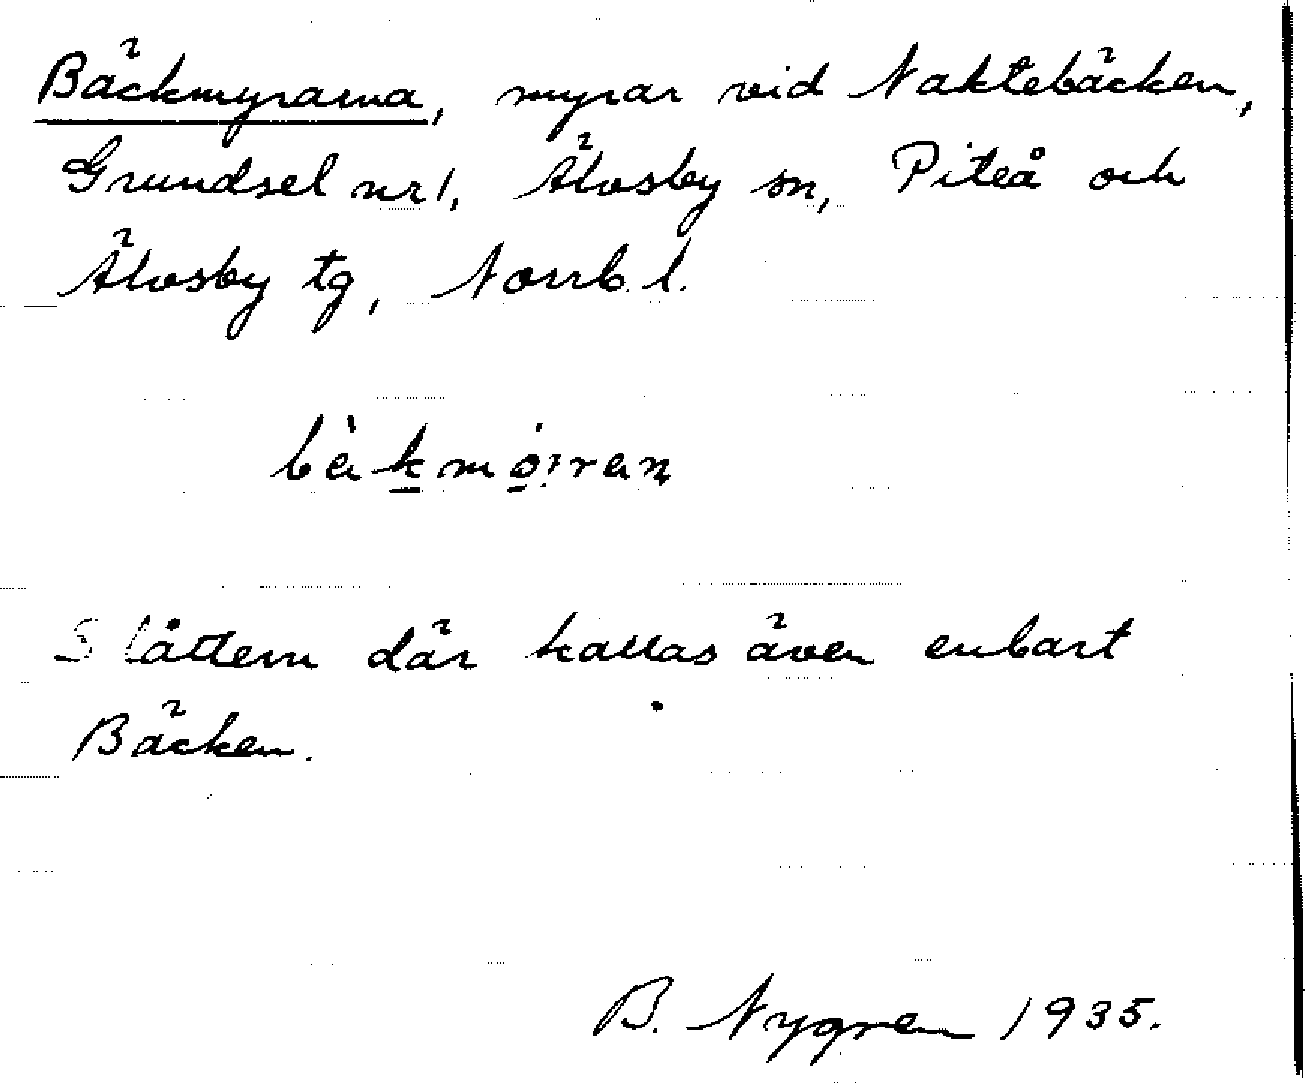 Bäckmyrarna, myrar vid Naktebäcken,
Grundsel nr 1, Älvsby sn, Piteå och
Älvsby tg, Norrb. l.
Slåttern där kallas även enbart
Bäcken.
B. Nygren 1935.